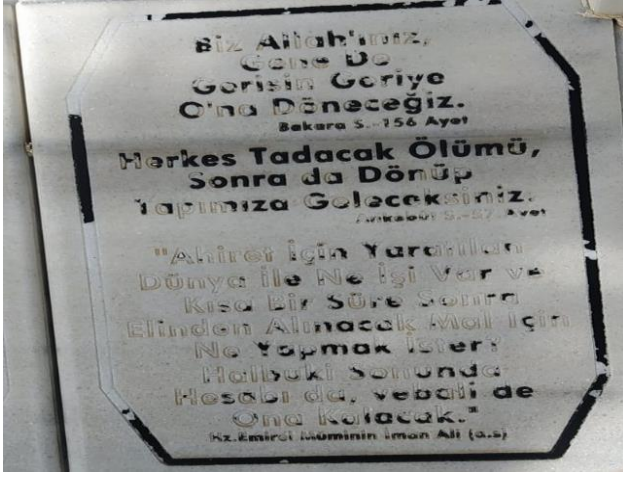 Biz Allah'ınız,
Gene De
Gerisin Geriye
O'na Döneceğiz.
Bakara S.-156 Ayet
Herkes Tadacak Ölümü,
Sonra da Dönüp
Tapımıza Geleceksiniz.
Ankebût S.-57 Ayet
"Ahiret İçin Yaratılan
Dünya İle Ne İşi Var ve
Kısa Bir Süre Sonra
Elinden Alınacak Mal İçin
Ne Yapmak İster?
Halbuki Sonunda
Hesabı da, vebali de
Ona Kalacak."
Hz.Emirel Müminin İmam Ali (a.s)